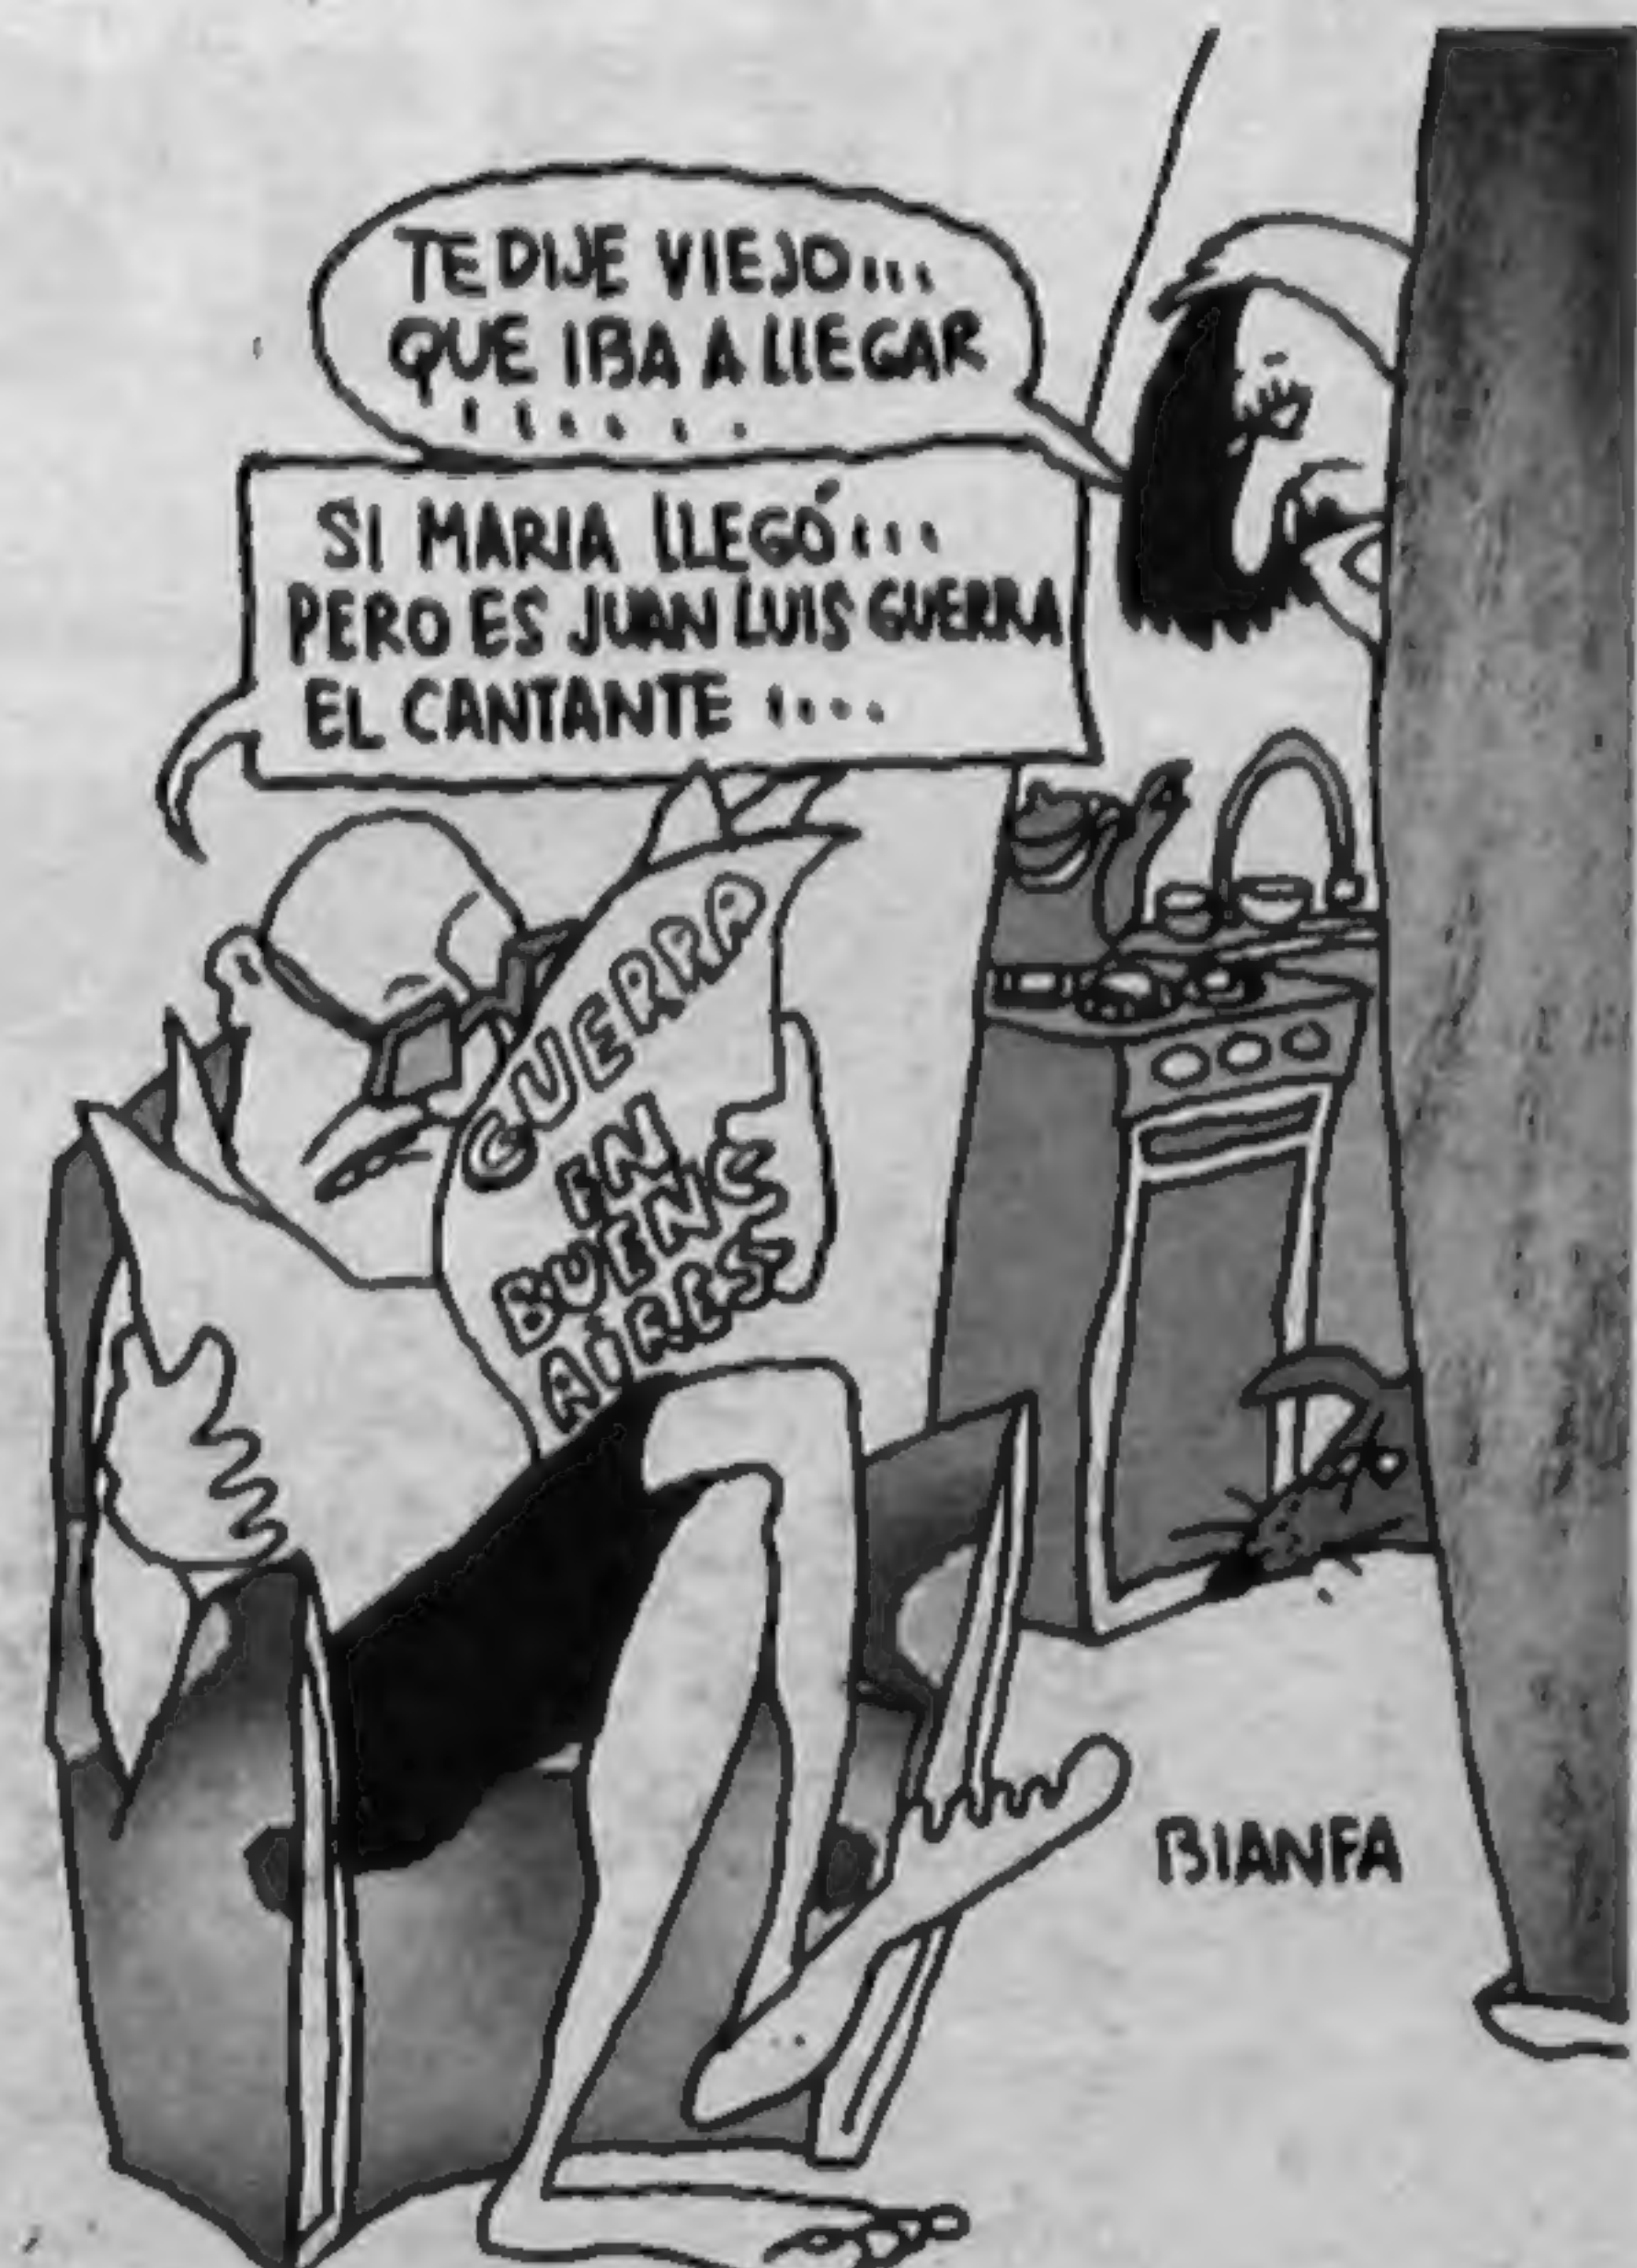 TE DIJE VIEJO...
QUE IBA A LLEGAR
......
SI MARIA LLEGÓ...
PERO ES JUAN LUIS GUERRA
EL CANTANTE ....
GUERRA
EN
BUENO
AIRES
BIANFA